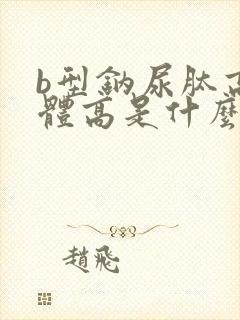 b型鈉尿肽
體高是什麼
趙飛